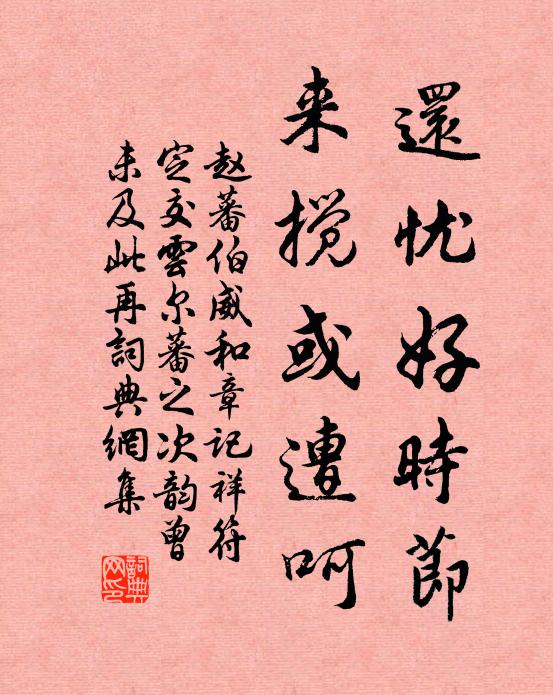 還忧好時節
来搅或遭呵
赵蕃伯威和章记祥符
定交雲尔蕃之次韵曾
未及此再詞典網集
詞典网印